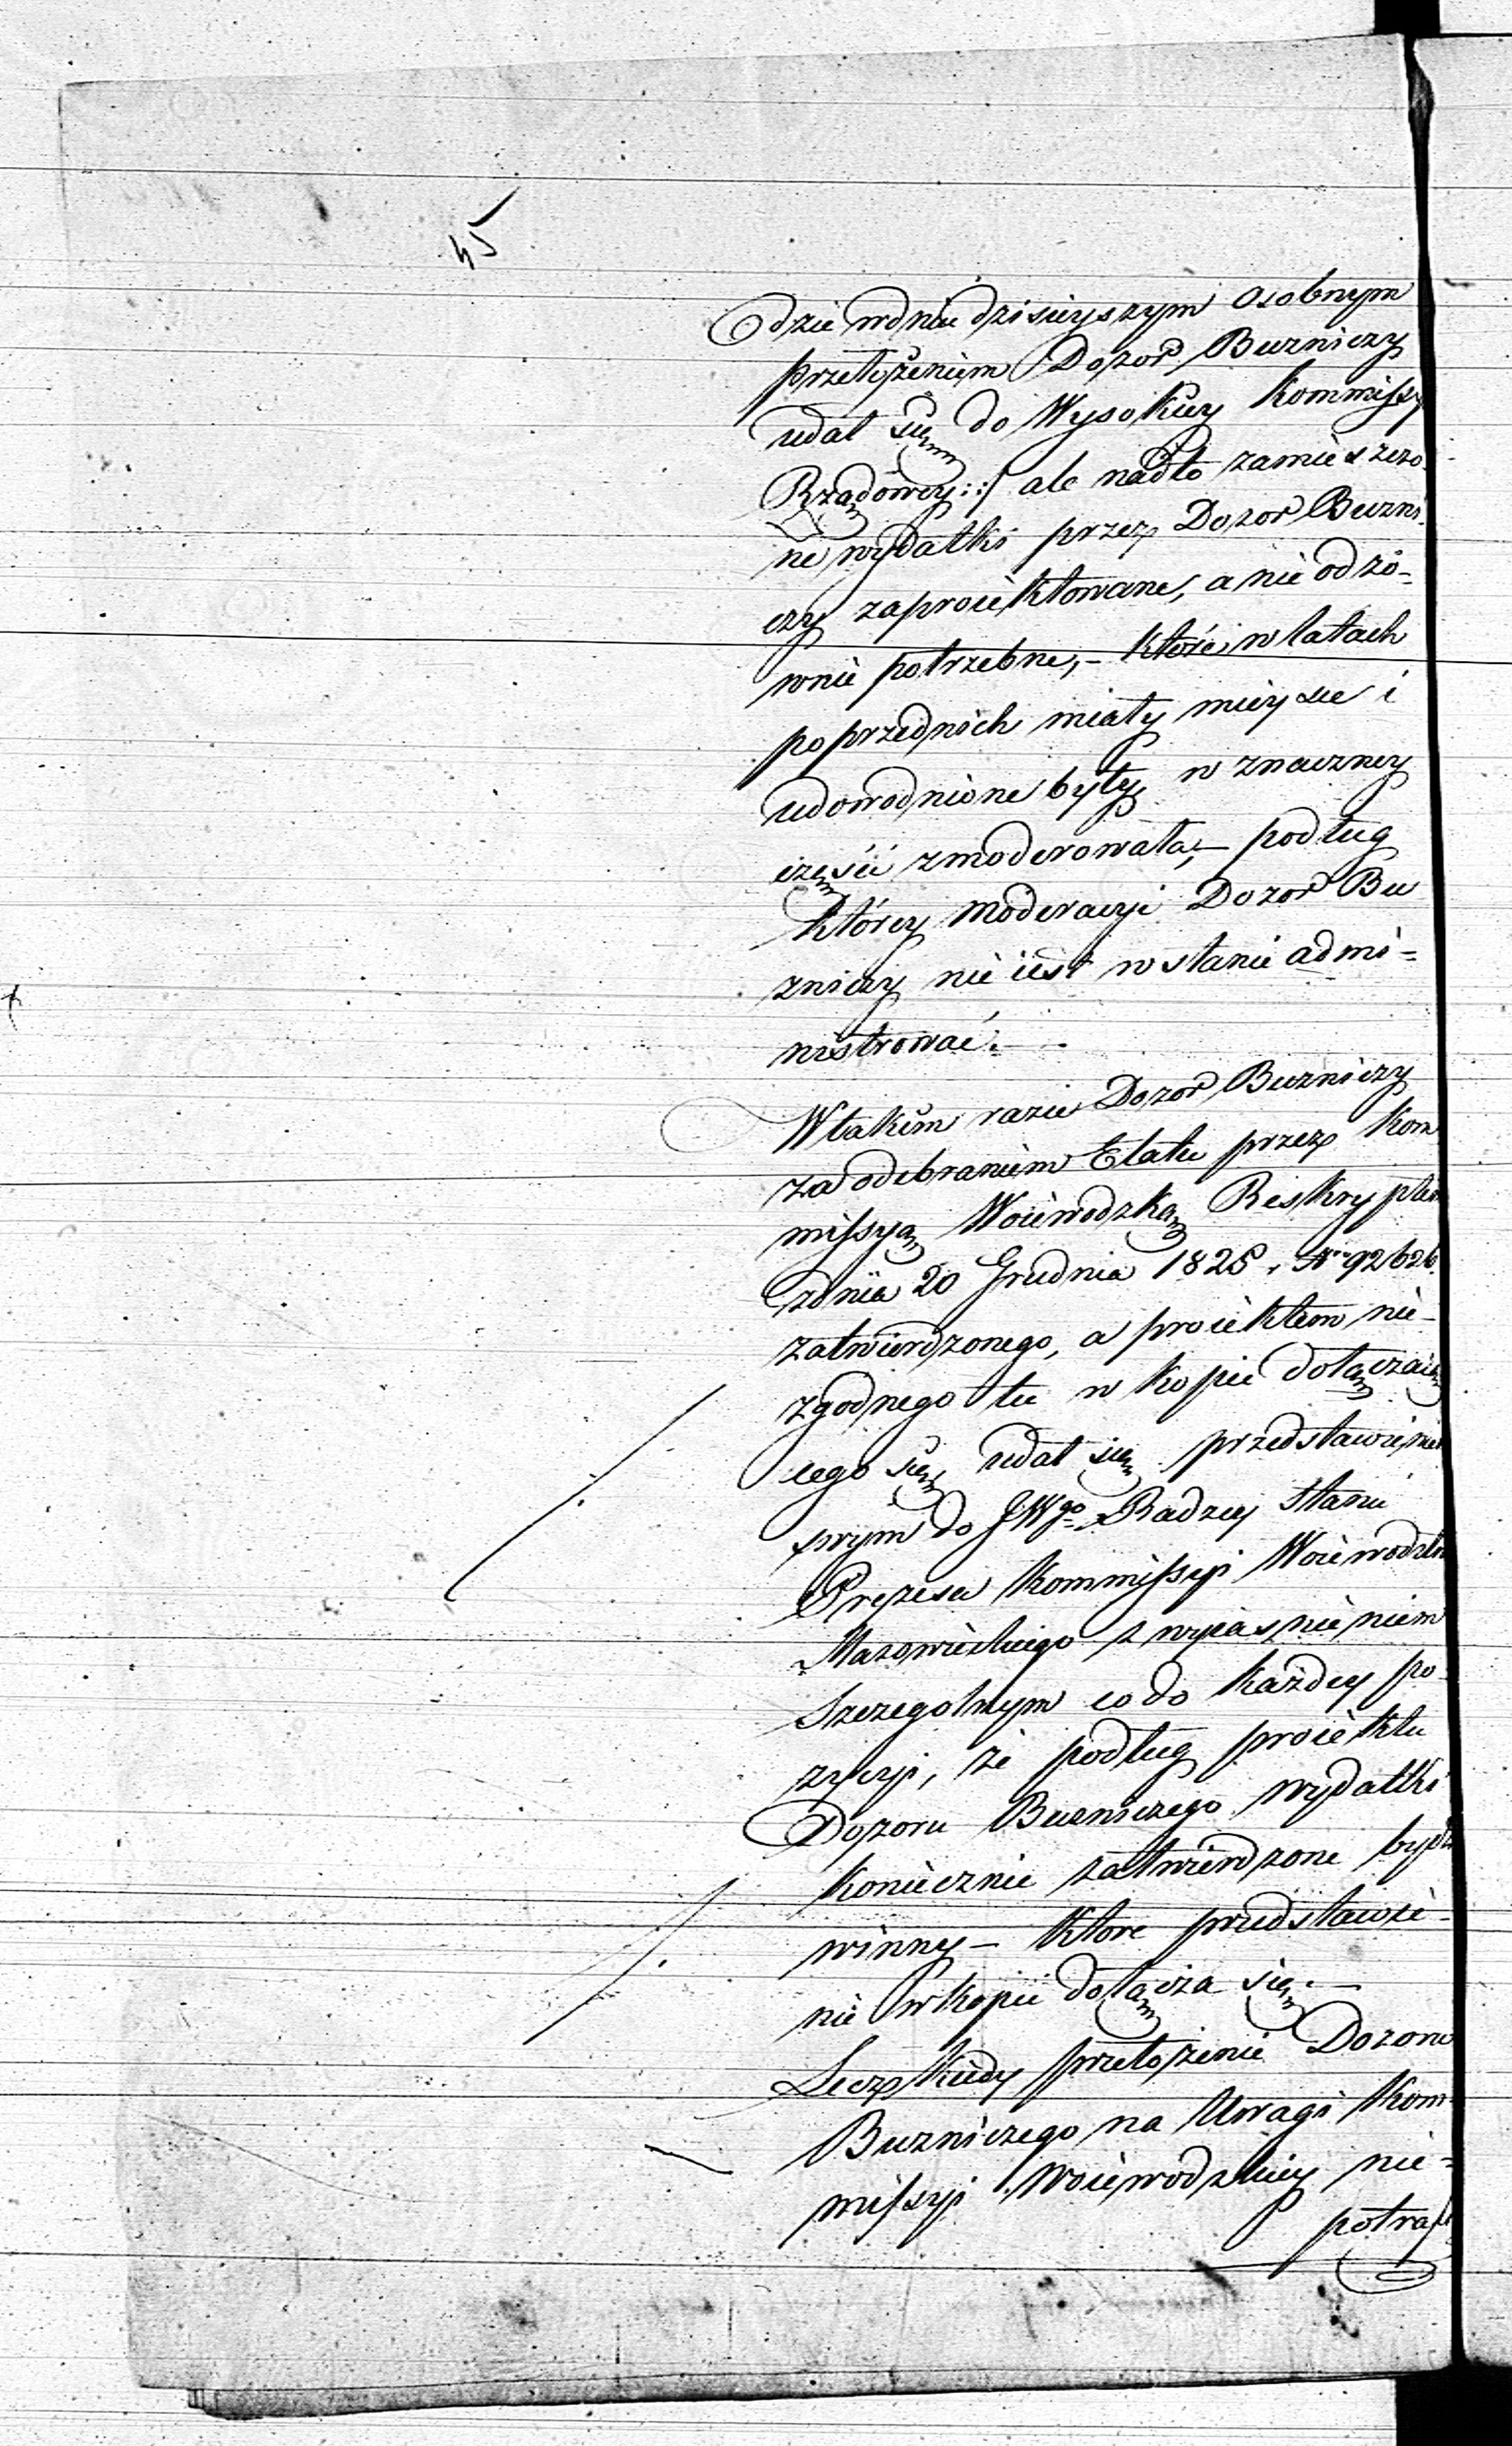 45
dzie w dniu dzisieyszym osobnym
przełożeniem Dozor Buzniczy
udał się do Wysokiey Kommissy
Rządowey :/ ale nadto zamieszczo-
ne wydatki przez Dozor Buzni-
czy zaproiektowane, a nieodzo-
wnie potrzebne, – które w latach
poprzednich miały mieysce i
udowodnione były w znaczney
części zmoderowała, – podług
którey moderacyi Dozor Bu
zniczy nie iest w stanie admi=
nistrować. –
W takim razie Dozor Buzniczy
za odebraniem Etatu przez Kom
missyą Woiewodzką Reskryptem
z dnia 20 Grudnia 1825 r. No 92626
zatwierdzonego, a proiektem nie-
zgodnego tu w kopie dołączaią
cego się, udał się przedstawieniem
swym do JWgo Radzcy Stanu
Prezesa Kommissyi Woiewodztwa
Mazowieckiego z wyiaśnieniem
szczegolnym co do każdey po-
zycyi, że podług proiektu
Dozoru Buzniczego wydatki
koniecznie zatwierdzone bydź
winny – które przedstawie-
nie w kopii dołącza się. –
Lecz kiedy przełożenie Dozoru
Buzniczego na Uwagi Kom-
missyi Woiewodzkiey nie=
potrafi